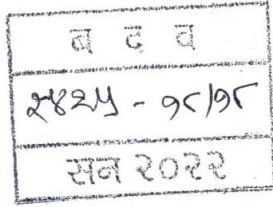 ब द व
२४२५ - १८/१८
सन २०२२